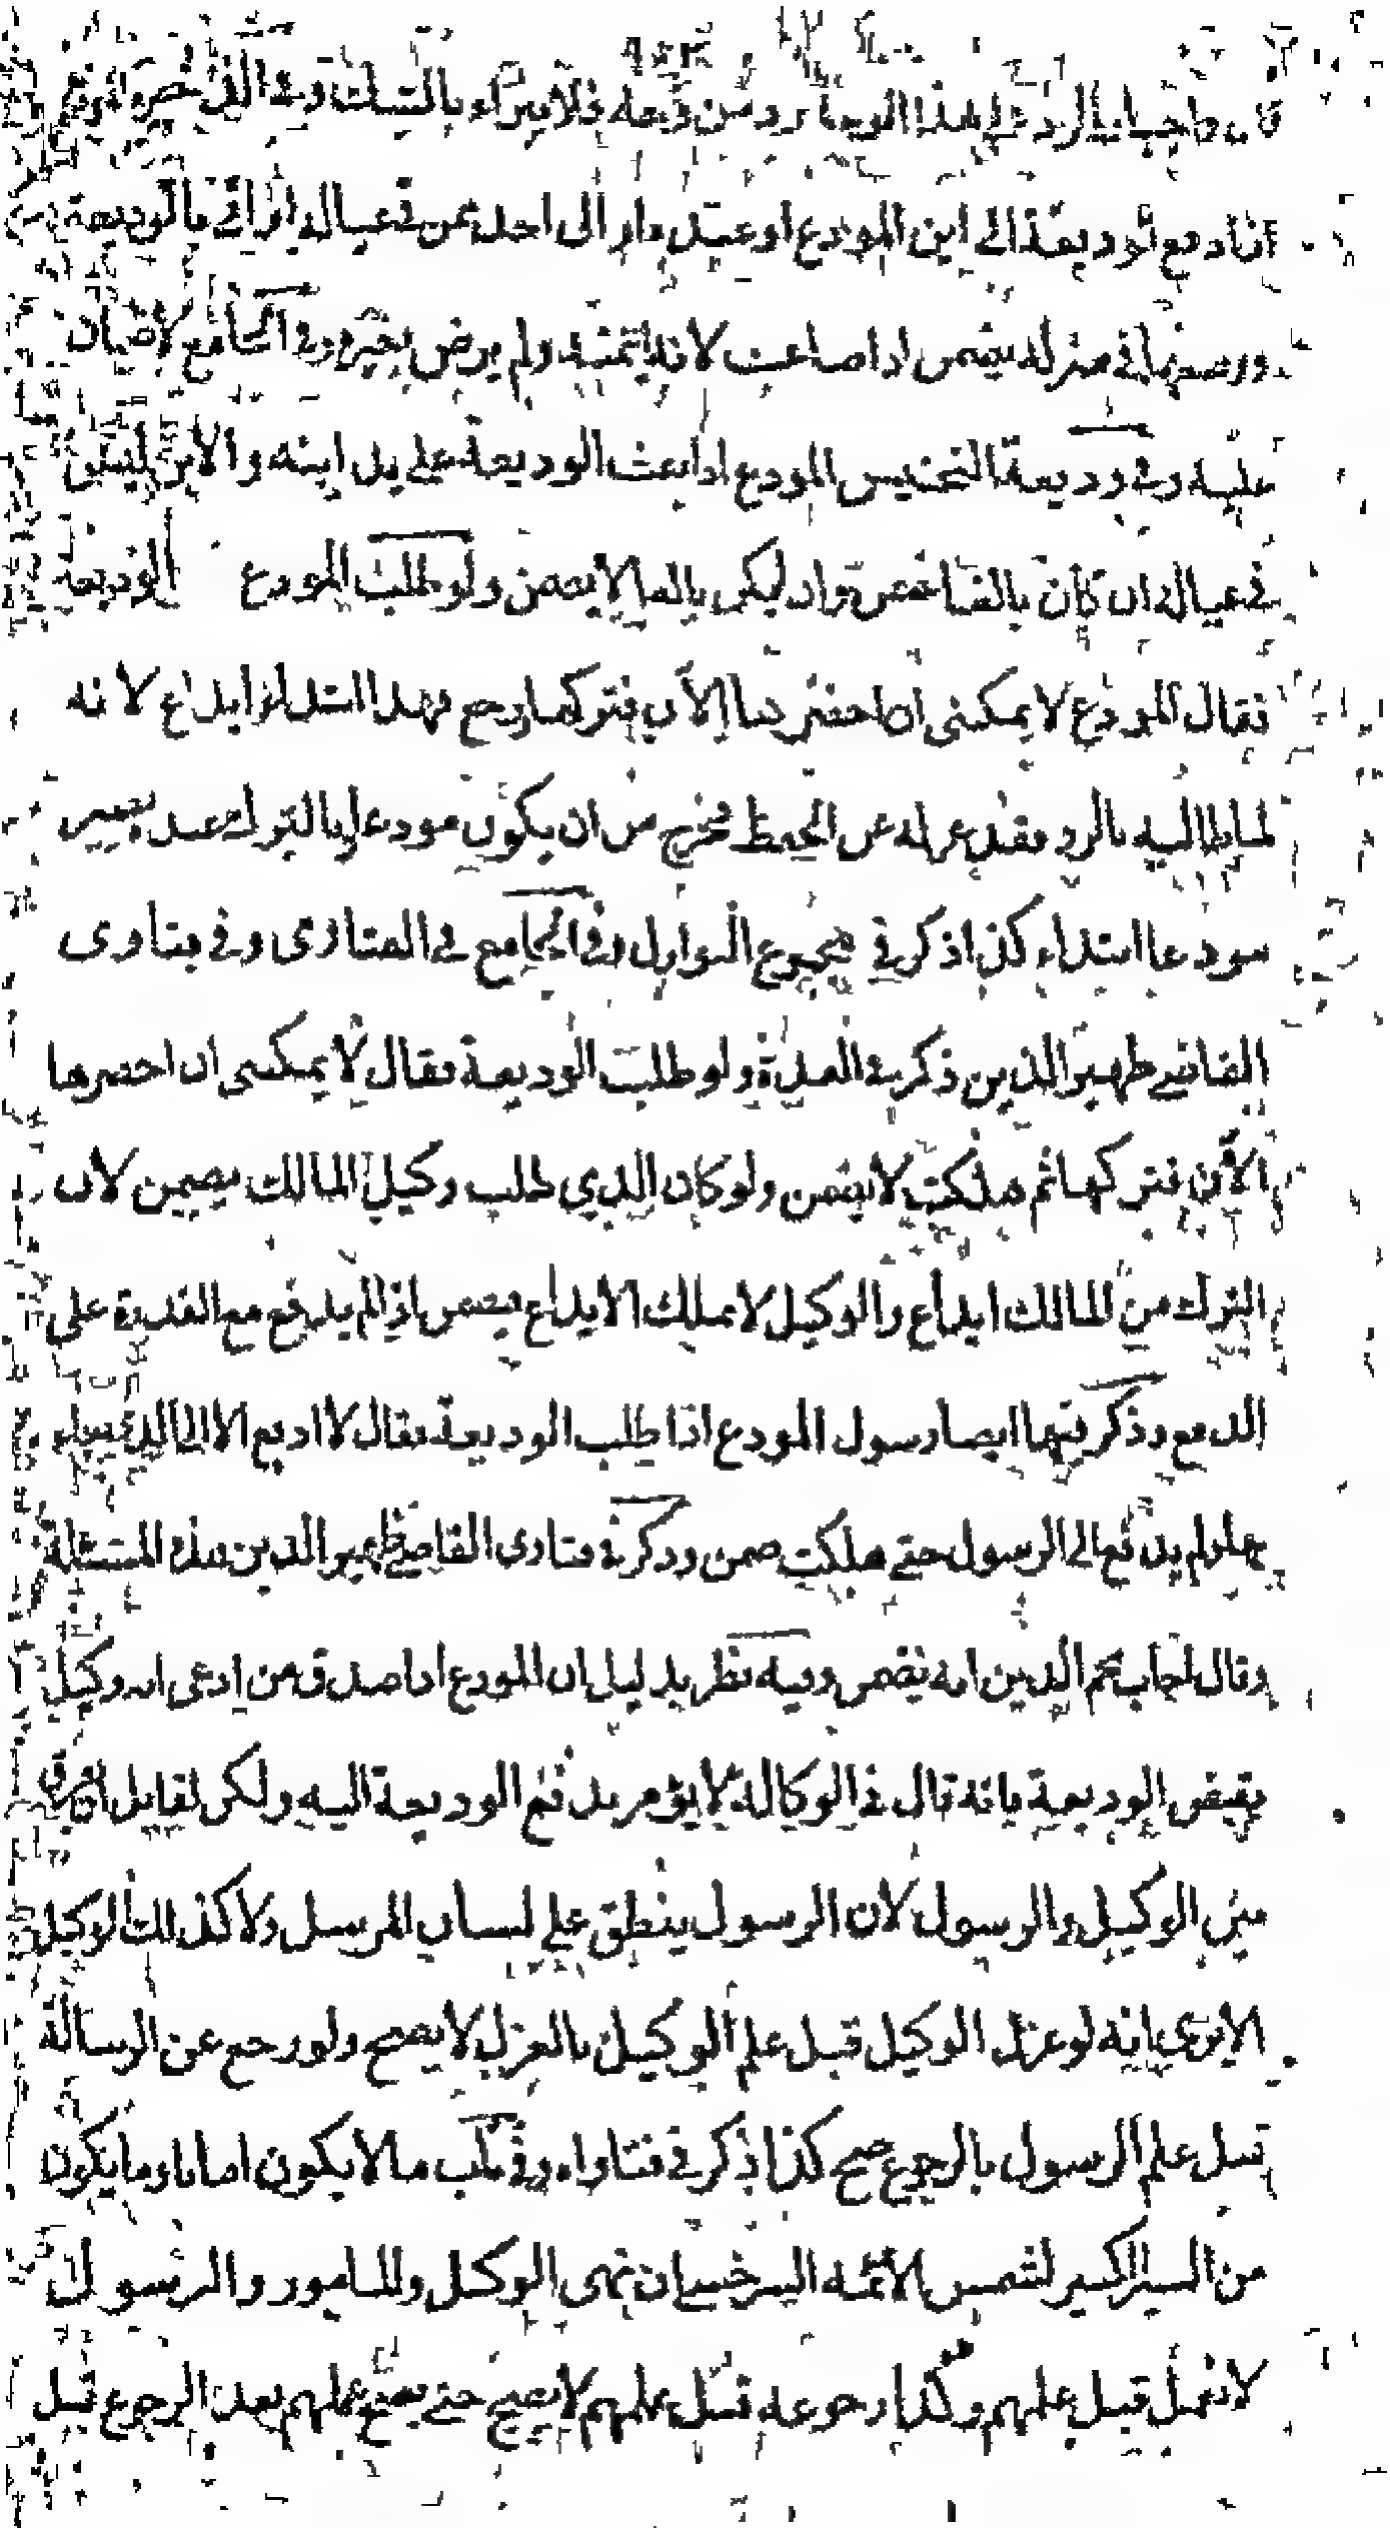 اذا دفع الوديعة الى ابن المودع او عبده او الى احد ممن في عياله او اتى بالوديعة
ووضعها في منزله يضمن اذا ضاعت لانه ائتمنه ولم يرض بغيره وفي الجامع لا ضمان
عليه وفي وديعة التجنيس المودع اذا بعث الوديعة على يد ابنه والابن ليس
في عياله ان كان بالغا ضمن وان لم يكن بالغا لا يضمن ولو طلب المودع الوديعة
فقال المودع لا يمكنني ان احضرها الآن فتركها ورجع فهذا ابتداء ايداع لانه
لما طالبه بالرد فقد عزله عن الحفظ فخرج من ان يكون مودعا وبالترك عنده يصير
مودعا ابتداء كذا ذكر في مجموع النوازل وفي الجامع في الفتاوى وفي فتاوى
القاضي ظهير الدين ذكر في العدة ولو طلب الوديعة فقال لا يمكننى ان احضرها
الآن فتركها ثم هلكت لا يضمن ولو كان الذي طلب وكيل المالك يضمن لان
الترك من المالك ايداع والوكيل لا يملك الايداع فيضمن اذ لم يدفع مع القدرة على
الدفع وذكر فيها ايضا رسول المودع اذا طلب الوديعة فقال لا ادفع الا الى الذي
بها ولم يدفع الى الرسول حتى هلكت ضمن وذكر في فتاوى القاضي ظهير الدين هذه المسئلة
وقال اجاب نجم الدين انه يضمن وفيه نظر بدليل ان المودع اذا صدق من ادعى انه وكيل
بقبض الوديعة بانه قال في الوكالة لا يؤمر بدفع الوديعة اليه ولكن لقايل ان يفرق
بين الوكيل والرسول لان الرسول ينطق على لسان المرسل ولا كذلك الوكيل
الا يرى انه لو عزل الوكيل قبل علم الوكيل بالعزل لا يصح ولو رجع عن الرسالة
قبل علم الرسول بالرجوع صح كذا ذكر في فتاواه وفي باب ما لا يكون امانا وما يكون
من السير الكبير لشمس الائمة السرخسي ان نهى الوكيل والمامور والرسول
لا تعمل قبل علمهم وكذا رجوعه قبل علمهم لا يصح حتى يصح عملهم بعد الرجوع قبل